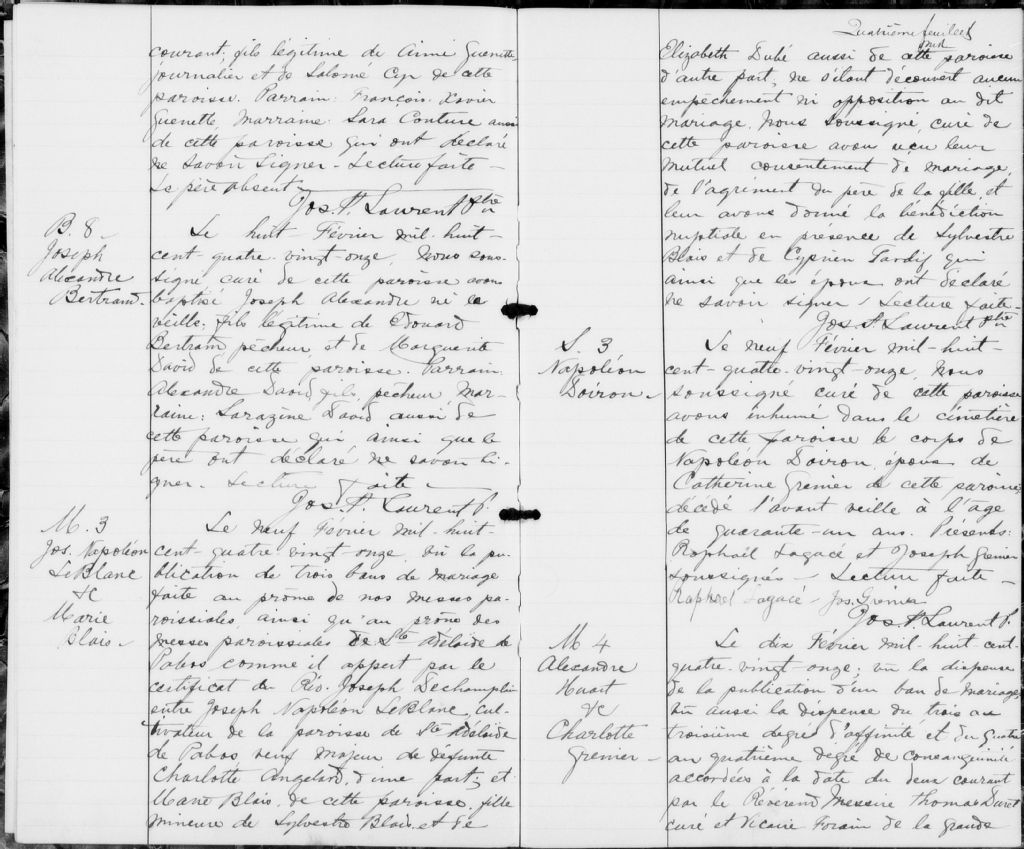 courant, fils légitime de Aimé Guenette,
journalier et de Salomé Cyr de cette
paroisse. Parrain: François Xavier
Guenette, Marraine: Sara Couture aussi
de cette paroisse qui ont déclaré
ne savoir signer - Lecture faite -
Le père absent -
Jos. P. Laurent Ptre
B. 8 -
Joseph
Alexandre
Bertrand -
Le huit Février mil-huit-
cent-quatre-vingt-onze, Nous sous-
signé, curé de cette paroisse avons
baptisé Joseph Alexandre né la
veille, fils légitime de Edouard
Bertrand pêcheur, et de Marguerite
David de cette paroisse. Parrain:
Alexandre David, fils, pêcheur, Mar-
raine: Sarazine David aussi de
cette paroisse qui, ainsi que le
père ont déclaré ne savoir si-
gner - Lecture faite -
Jos. P. Laurent P.
M. 3
Jos. Napoléon
LeBlanc
&c
Marie
Blais -
Le neuf Février mil-huit-
cent-quatre vingt-onze, vu la pu-
blication de trois bans de mariage
faite au prône de nos messes pa-
roissiales, ainsi qu'au prône des
messes paroissiales de Ste Adélaide de
Pabos comme il appert par le
certificat du Rév. Joseph
entre Joseph Napoléon LeBlanc, cul-
tivateur de la paroisse de Ste Adélaide
de Pabos, veuf majeur de défunte
Charlotte d'une part; et
Marie Blais, de cette paroisse, fille
mineure de Sylvestre Blais et de
Quatrième feuillet
Elizabeth Dubé aussi de cette paroisse
d'autre part, ne s'étant découvert aucun
empêchement ni opposition au dit
mariage, Nous soussigné, curé de
cette paroisse avons reçu leur
mutuel consentement de mariage,
de l'agrément du père de la fille, et
leur avons donné la bénédiction
nuptiale en présence de Sylvestre
Blais et de Cyprien Tardif qui
ainsi que les époux ont déclaré
ne savoir signer / Lecture faite -
Jos. P. Laurent Ptre
S. 3
Napoléon
Doiron -
Le neuf Février mil-huit-
cent-quatre-vingt-onze, Nous
soussigné curé de cette paroisse
avons inhumé dans le cimetière
de cette paroisse le corps de
Napoléon Doiron, époux de
Catherine Grenier de cette paroisse,
décédé l'avant veille à l'âge
de quarante-un ans. Présents:
Raphaël Lagacé et Joseph Grenier
soussignés - Lecture faite -
Raphael Lagacé - Jos. Grenier
Jos. P. Laurent P.
M 4
Alexandre
Huart
&c
Charlotte
Grenier -
Le dix Février mil-huit-cent-
quatre-vingt-onze; vu la dispense
de la publication d'un ban de mariage,
vu aussi la dispense du trois au
troisième degré d'affinité et du quatre
au quatrième degré de consanguinité
accordées à la date du deux courant
par le Révérend Messire Thomas
curé et Vicaire Forain de la Grande